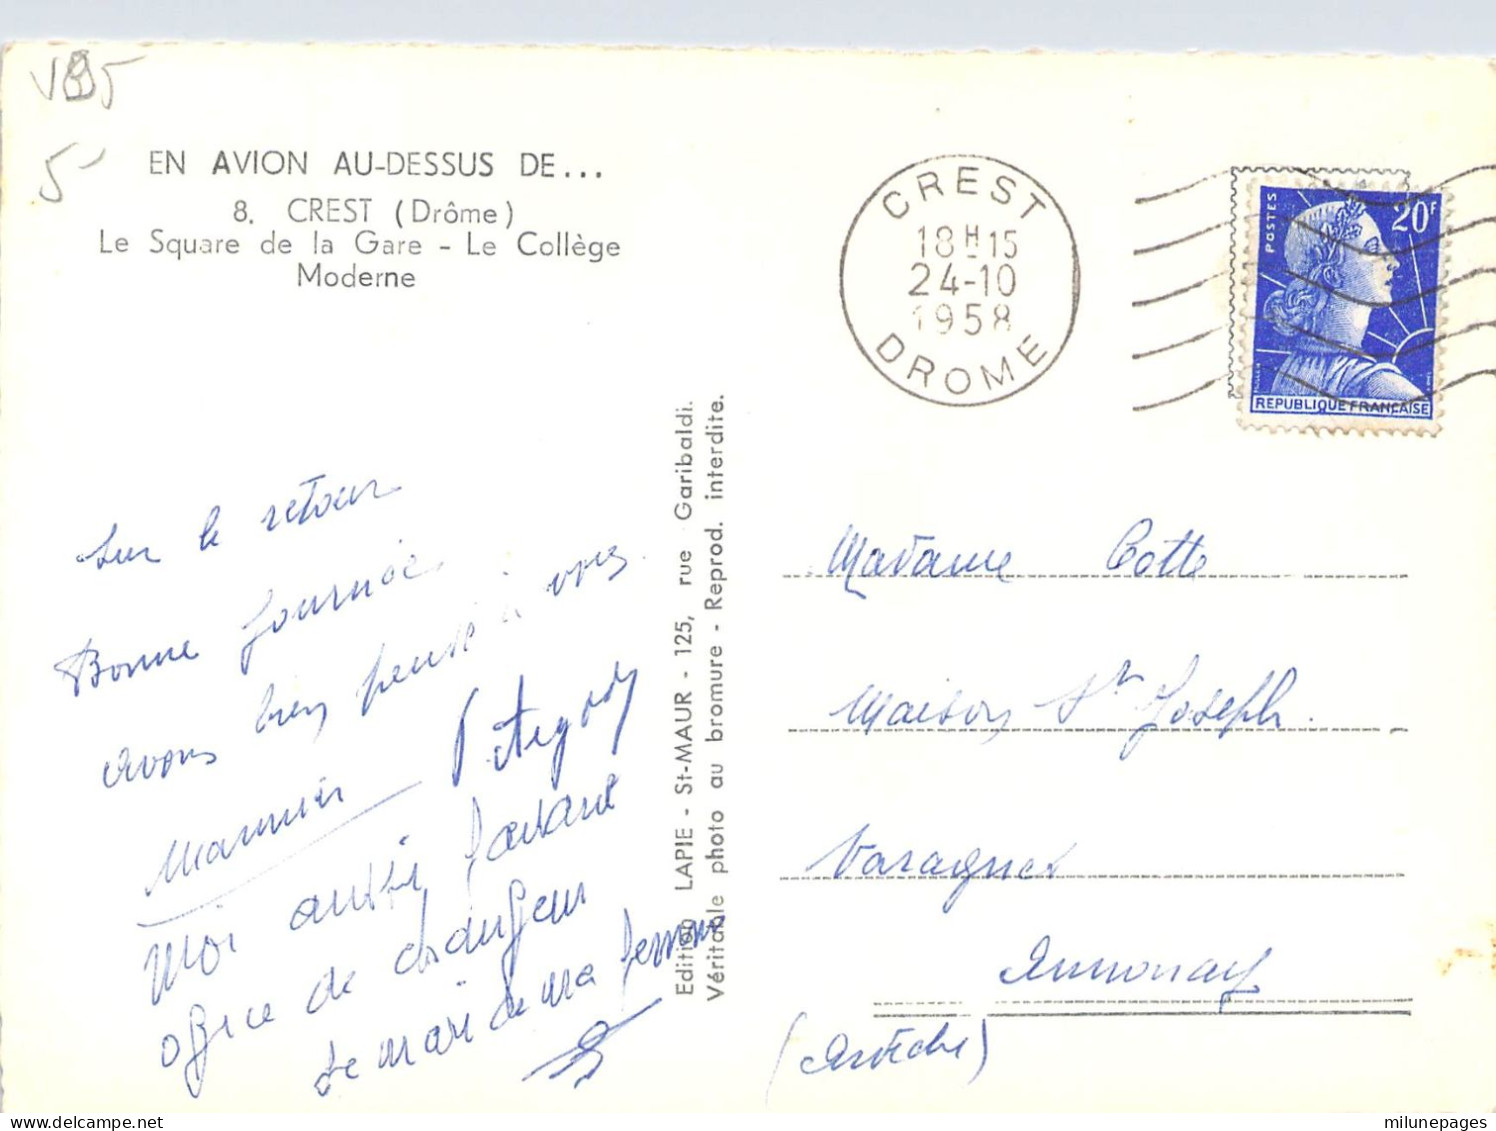 VB5
5-
EN AVION AU-DESSUS DE...
8. CREST (Drôme)
Le Square de la Gare - Le Collège
Moderne
CREST
18H15
24-10
1958
DROME
POSTES
20F
REPUBLIQUE FRANÇAISE
Sur le retour
Bonne journée
avons bien pensé à vous
Maunier
Moi aussi faisant
office de chauffeur
le mari de ma femme
Edition LAPIE - St-MAUR - 125, rue Garibaldi.
Véritable photo au bromure - Reprod. interdite.
Madame Cotte
Maison St Joseph.
Varagnes
Annonay
(Ardèche)
milunepages